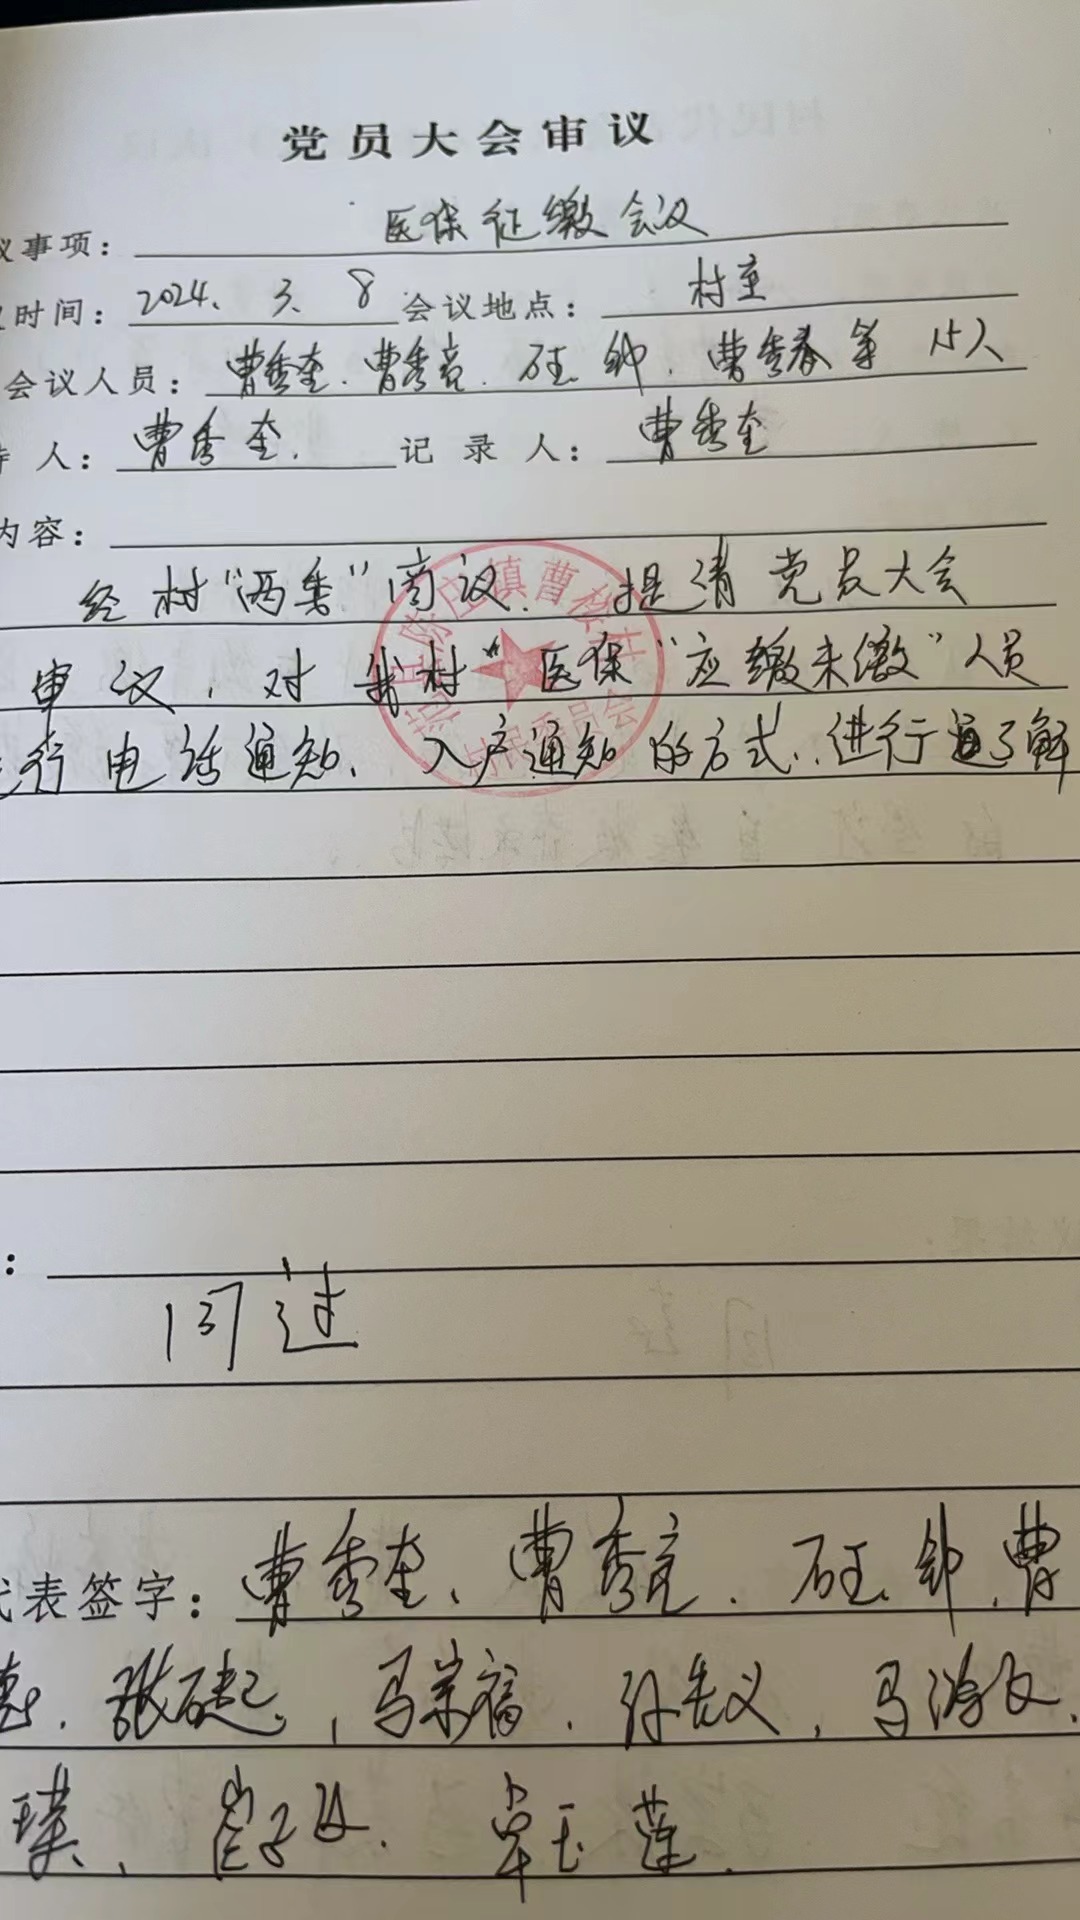 党员大会审议
议事项：医保征缴会议
议时间：2024. 3. 8 会议地点：村室
会议人员：曹秀奎、曹秀亮、 钟、曹秀春等15人
持人：曹秀奎. 记录人：曹秀奎
内容：
经村“两委”商议，提请党员大会
审议，对我村“医保“应缴未缴”人员
进行电话通知、入户通知的方式，进行通了解
镇曹楼村
村民委员会
：
同过
代表签字：曹秀奎、曹秀亮、 钟、曹
张 、马崇福、孙 义、马
玉莲.